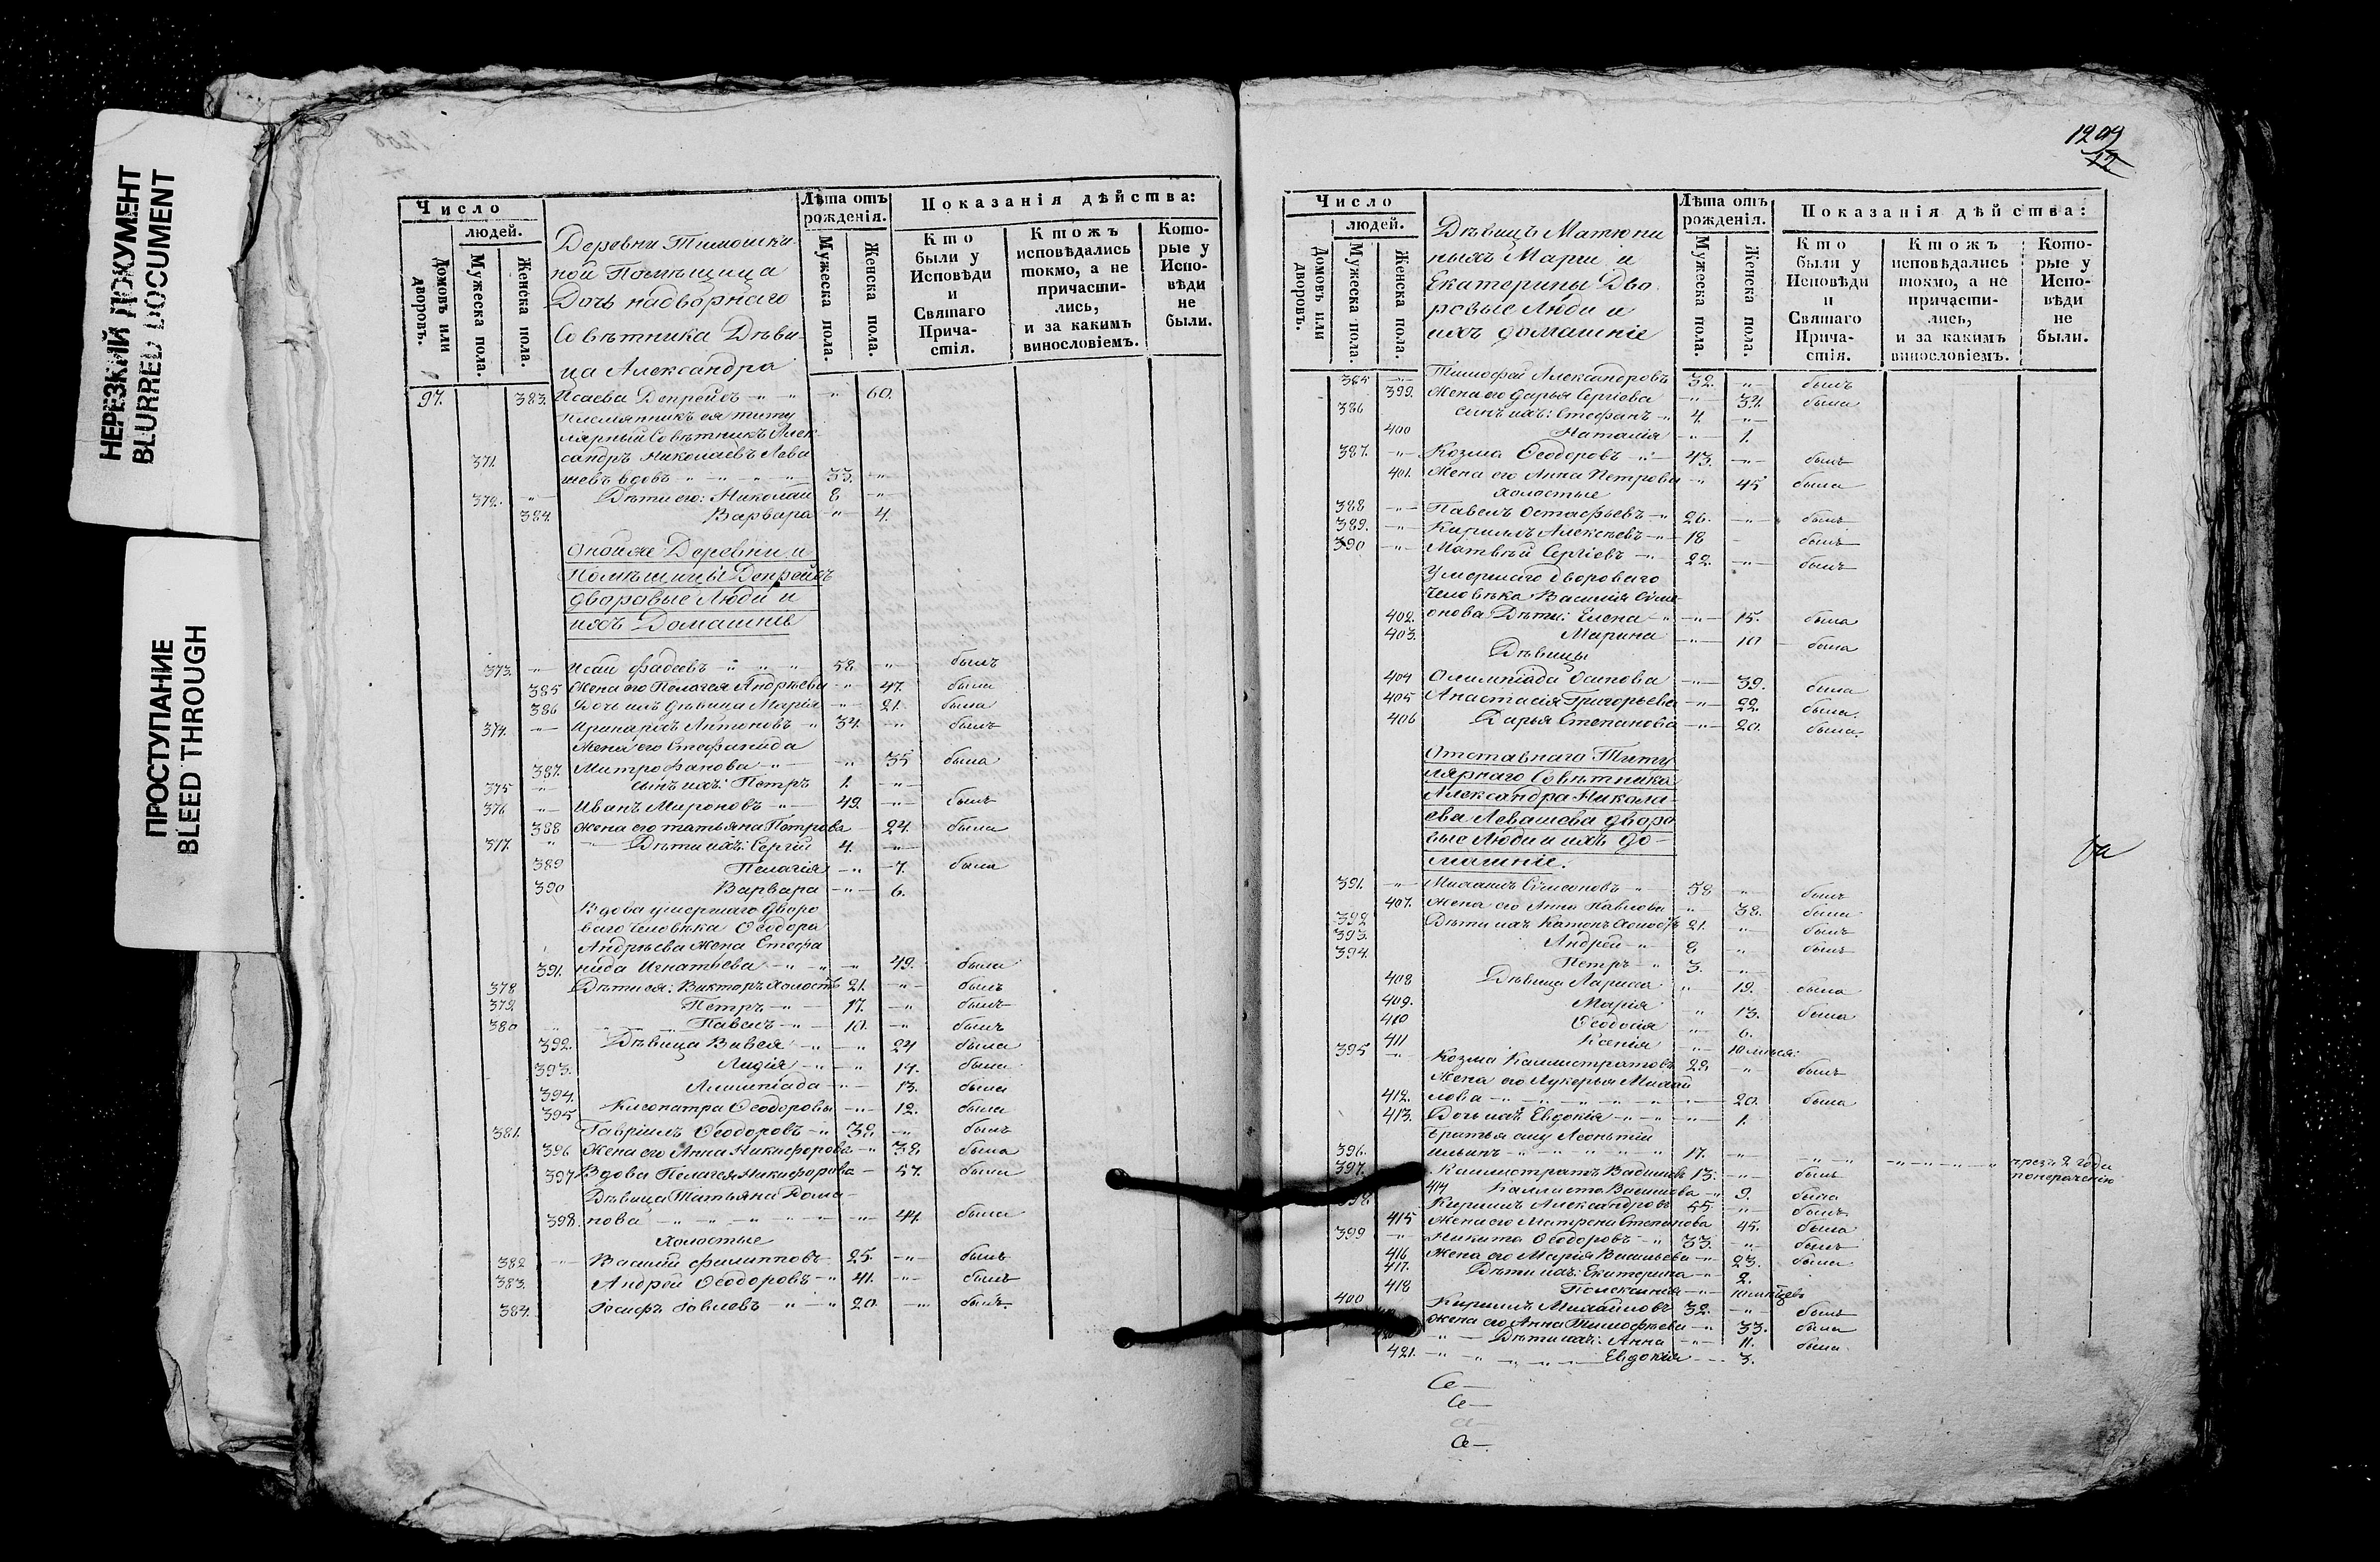 НЕРЕЗКИЙ ДОКУМЕНТ
BLURRED DOCUMENT
ПРОСТУПАНИЕ
BLEED THROUGH
Число
людей.
Домовъ или дворовъ.
Мужеска пола.
Женска пола.
Лѣта отъ рожденія.
Мужеска пола.
Женска пола.
Показанія дѣйства:
Кто были у Исповѣди и Святаго Причастія.
Ктожъ исповѣдались токмо, а не причастились, и за какимъ винословіемъ.
Которые у Исповѣди не были.
Деревни Тимошки-
ной Помѣщица
Дочь надворнаго
Совѣтника Дѣви-
ца Александра
97. 383. Исаева Депрейсъ 60.
Племянникъ ея титу
лярный Совѣтникъ Алек-
371. сандръ Николаевъ Лева
шевъ вдовъ 33.
372. Дѣти его: Николай 8
384. Варвара 4.
Тойже Деревни и
Помѣщицы Депрейсъ
дворовые Люди и
ихъ Домашніе
373. Исай Фадеевъ 58. былъ
385 Жена его Пелагея Андрѣева 47. была
386 Дочь ихъ дѣвица Марія 21. была
374. Иринархъ Антоновъ 34. былъ
Жена его Стефанида
387. Митрофанова 35 была
375 сынъ ихъ: Петръ 1.
376 Иванъ Мироновъ 49. былъ
388 Жена его татьяна Петрова 24. была
317. Дѣти ихъ: Сергій 4.
389 Пелагія 7. была
390 Варвара 6.
Вдова умершаго дворо
ваго Человѣка Ѳеодора
Андрѣева Жена Стефа
391. нида Игнатьева 49. была
378 Дѣти ея: Викторъ холостъ 21. былъ
379. Петръ 17. былъ
380 Павелъ 10. былъ
392. Дѣвица Вивея 24 была
393. Лидія 19. была
394. Алимпіада 13. была
395 Клеопатра Ѳеодоровы 12. была
381. Гавріилъ Ѳеодоровъ 39. былъ
396 Жена его Анна Никифорова 38 была
397 Вдова Пелагея Никифорова 57. была
Дѣвица Татьяна Рома-
398. нова 44. была
Холостые
382 Василій Филипповъ 25. былъ
383. Андрей Ѳеодоровъ 41. былъ
384. Іосифъ Іовлевъ 20. былъ
1209
12
Число
людей.
Домовъ или дворовъ.
Мужеска пола.
Женска пола.
Лѣта отъ рожденія.
Мужеска пола.
Женска пола.
Показанія дѣйства:
Кто были у Исповѣди и Святаго Причастія.
Ктожъ исповѣдались токмо, а не причастились, и за какимъ винословіемъ.
Которые у Исповѣди не были.
Дѣвицъ Матюни
ныхъ Маріи и
Екатерины Дво
ровые Люди и
ихъ домашніе
385 Тимофей Александровъ 32. былъ
399. Жена его Дарья Сергіева 34. была
386 сынъ ихъ: Стефанъ 4.
400 Наталія 1.
387. Козма Ѳеодоровъ 43. былъ
401. Жена его Анна Петрова 45 была
холостые
388 Павелъ Остафьевъ 26. былъ
389. Кириллъ Алексѣевъ 18 былъ
390 Матвѣй Сергіевъ 22. былъ
Умершаго двороваго
Человѣка Василія Симе
402. онова Дѣти: Елена 15. была
403. Марина 10 была
Дѣвицы
404 Олимпіада Осипова 39. была
405 Анастасія Григорьева 22. была.
406 Дарья Степанова 20. была.
Отставнаго Титу
лярнаго Совѣтника
Александра Никола-
ева Левашева дворо
вые Люди и ихъ до-
машніе.
391. Михаилъ Симеоновъ 58 былъ
407. Жена его Анна Павлова 38. была
392 Дѣти ихъ Капонъ Холостъ 21. былъ
393. Андрей 8 былъ
394. Петръ 3.
408 Дѣвица Лариса 19. была
409. Марія 13. была
410 Ѳеодосія 6.
411 Ксенія 10 мѣсяц:
395 Козма Каллистратовъ 22. былъ
Жена его Лукерья Михай
412. лова 20. была
413. Дочь ихъ Евдокія 1.
братья ему Леонтій
396. 17. чрезъ 2 года
397. Каллистратъ 13. былъ
414 Каллиста Васильева 9. была
398. Кириллъ Александровъ 55 былъ
415 Жена его Матрена Степанова 45. была
399 Никита Ѳеодоровъ 33. былъ
416 Жена его Марія Васильева 23. была
417. Дѣти ихъ: Екатерина 2.
418
400 Кириллъ Михайловъ 32. былъ
Жена его Анна Тимофѣева 33. была
Дѣти ихъ: Анна 11. была.
421. Евдокія 3.